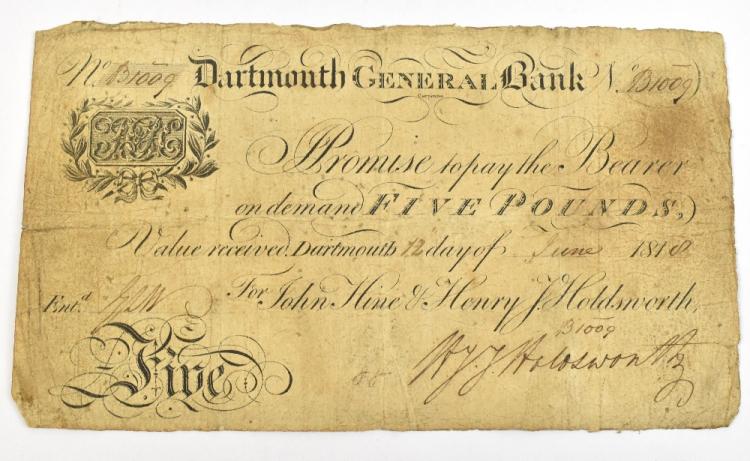 No. B1009 Dartmouth GENERAL Bank No. B1009
I Promise to pay the Bearer
on demand FIVE POUNDS,
Value received. Dartmouth 12 day of June 1818
Ent.d
For John Hine & Henry J. Holdsworth,
B1009
Five
H. J. Holdsworth